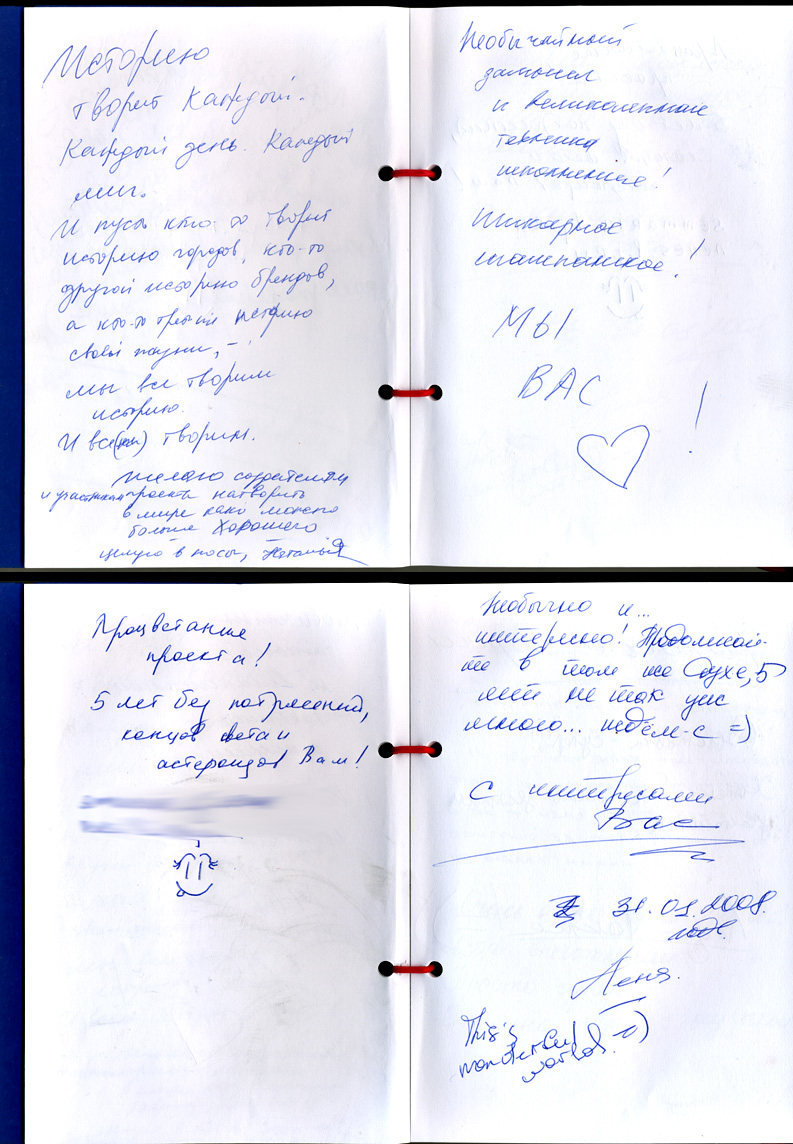 Историю
творит каждый.
Каждый день. Каждый
миг.
И пусть кто-то творит
историю городов, кто-то
другой историю брендов,
а кто-то третий историю
своей жизни, –
мы все творим
историю.
И все(мы) творим.
желаю создателям
и участникам проекта натворить
в мире как можно
больше хорошего
целую в носы, Наталья
Необычайный
замысел
и великолепная
техника
исполнения!
Шикарное
шампанское!
МЫ
ВАС
!
Процветания
проекта!
5 лет без потрясений,
концов света и
астероидов Вам!
Необычно и...
интересно! Продолжай-
те в том же духе, 5
лет не так уж
много... ждём-с =)
С интересами
Вас
31.01.2008.
Лена.
This's
wonderful
world. =)